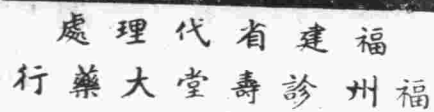 福建省代理處
福州診壽堂大藥行